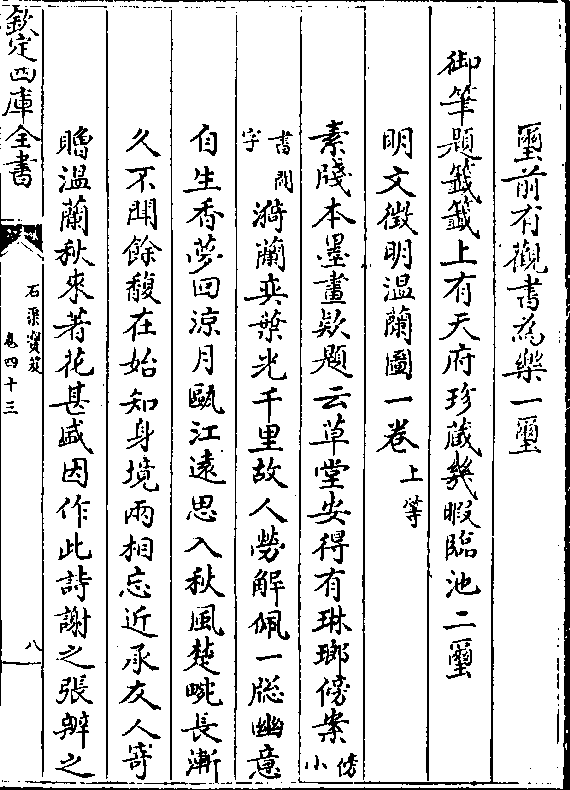 璽前有觀書為樂一璽
御筆題籤籤上有天府珍蔵幾暇臨池二璽
明文徵明温蘭圖一卷上等
素牋本墨畫欵題云草堂安得有琳瑯傍案傍小
書閒字漪蘭奕葉光千里故人勞解佩一牕幽意
自生香夢回涼月甌江遠思入秋風楚畹長漸
久不聞餘馥在始知身境兩相忘近承友人寄
贈温蘭秋來著花甚盛因作此詩謝之張辨之
欽定四庫全書
石渠寳笈
卷四十三
八